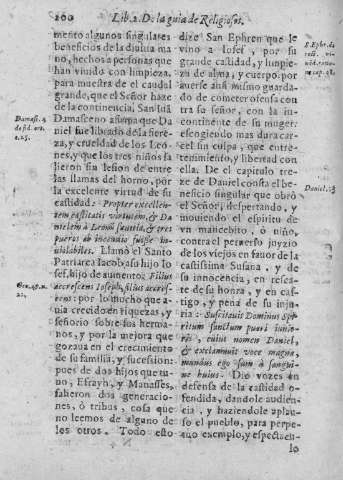 200 Lib. 2. De la guia de Religiosos.
mento algunos singulares
beneficios de la diuina ma
no, hechos a personas que
han viuido con limpieza,
para muestra de el caudal
grande, que el Señor haze
de la continencia. San Iuã
Damasceno afirma que Da
niel fue librado de la fiere-
za, y crueldad de los Leo-
nes, y que los tres niños sa
lieron sin lesion de entre
las llamas del horno, por
la excelente virtud de su
castidad: Propter excellen-
tem castitatis virtutem, & Da
nielem à Leonũ sæuitia, & tres
pueros ab incendio fuisse in-
uiolabiles. Llamò el Santo
Patriarca Iacob a su hijo Io
sef, hijo de aumento: Filius
accrescens Ioseph, filius accres-
cens: por lo mucho que a-
uia crecido en riquezas, y
señorio sobre sus herma-
nos, y por la mejora que
gozaua en el crecimiento
de su familia, y sucession:
pues de dos hijos que tu-
uo, Efrayn, y Manasses,
salieron dos generacio-
nes, ò tribus, cosa que
no leemos de alguno de
los otros. Todo esto
Damasc. 4
de fid. ort.
c. 25.
Gen. 49. n.
22.
dize San Ephren que le
vino a Iosef, por su
grande castidad, y limpie
za de alma, y cuerpo: por
auerse assi mismo guarda-
do de cometer ofensa con
tra su señor, con la in-
continente de su muger:
escogiendo mas dura car-
cel sin culpa, que entre-
tenimiento, y libertad con
ella. De el capitulo tre-
ze de Daniel consta el be-
neficio singular que obrò
el Señor, despertando, y
mouiendo el espiritu de
vn mancebito, ò niño,
contra el peruerso juyzio
de los viejos en fauor de la
castissima Susana, y de
su innocencia, en resca-
te de su honra, y en cas-
tigo, y pena de su inju-
ria: Suscitauit Dominus Spi-
ritum sanctum pueri iunio-
ris, cuius nomen Daniel,
& exclamauit voce magna,
mundus ego sum à sangui-
ne huius. Dio vozes en
defensa de la castidad o-
fendida, dandole audien-
cia, y haziendole aplau-
so el pueblo, para perpe-
tuo exemplo, y espectacu-
lo
Daniel. 13